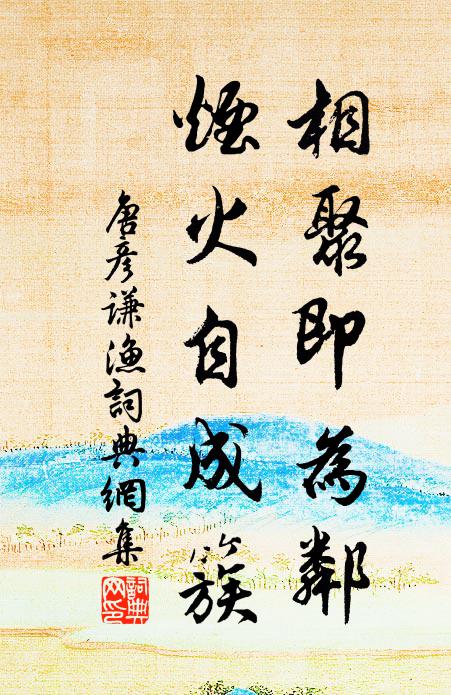 相聚即為鄰
煙火自成簇
唐彥謙漁詞典網集
詞典網印